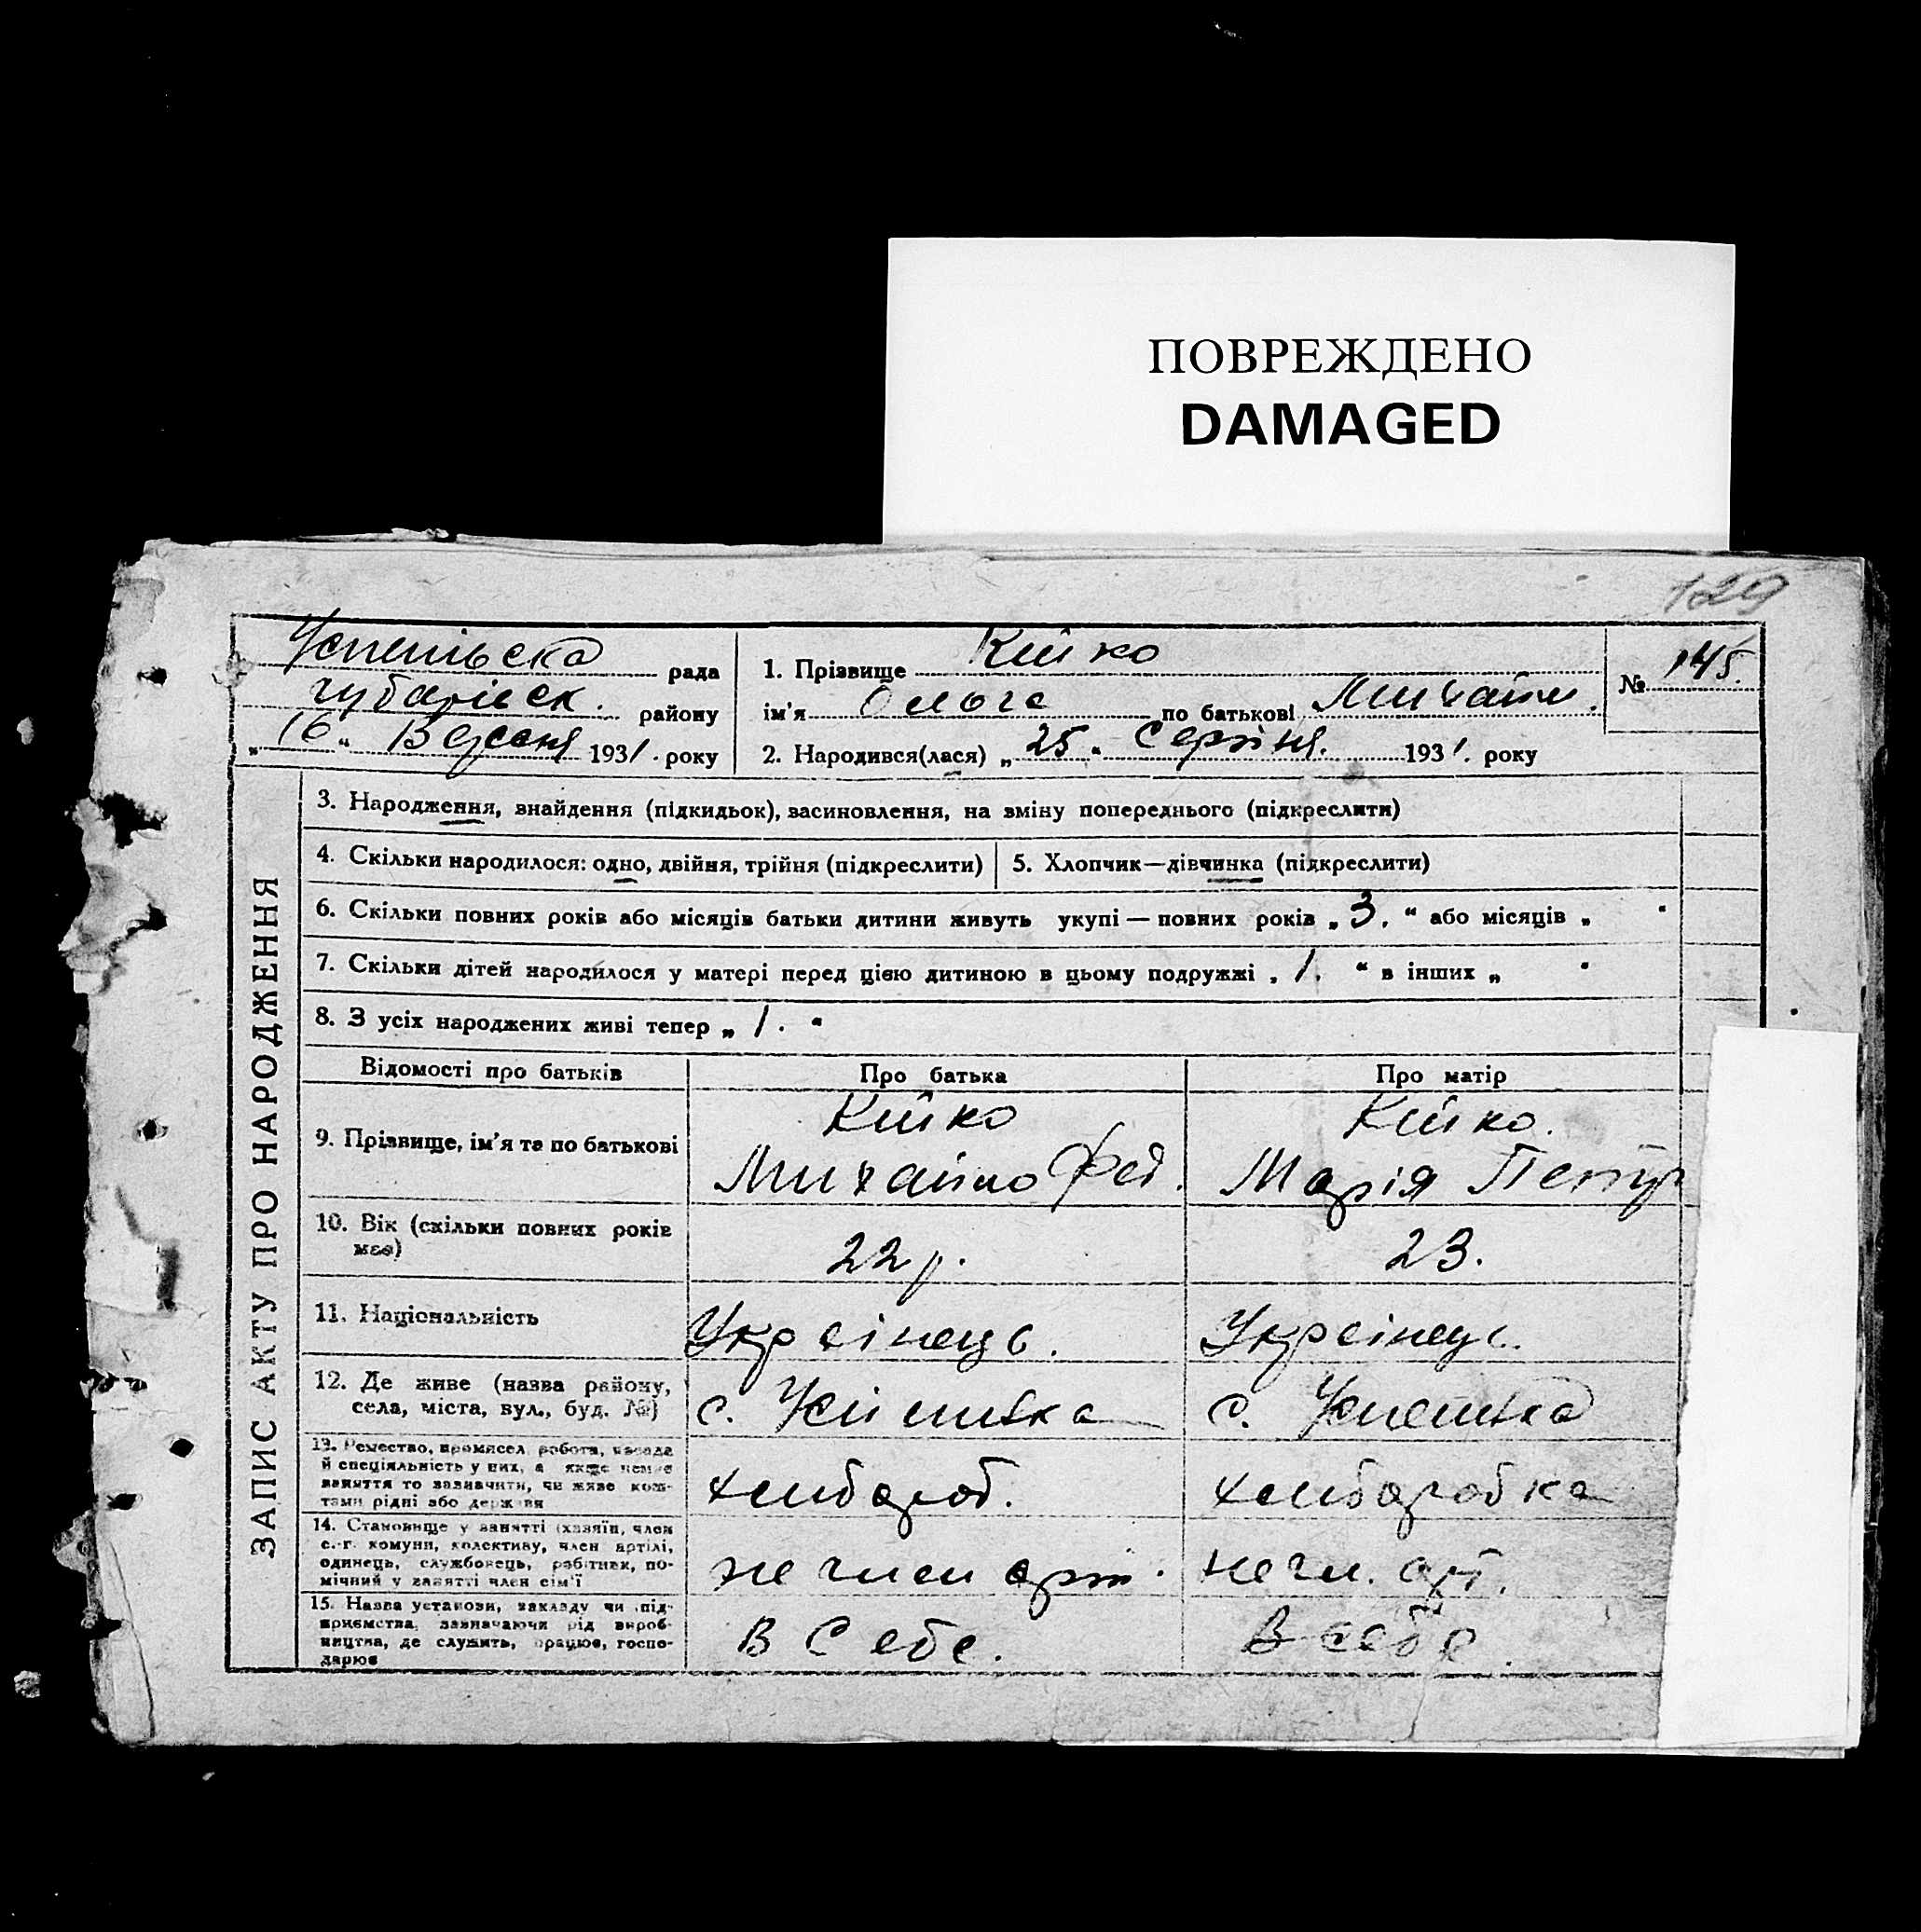 ПОВРЕЖДЕНО
DAMAGED
129
Успенівська рада
Губарівск. району
„16“ Вересня 1931. року
1. Прізвище Кійко
ім’я Ольга по батькові Михайл.
№ 145.
2. Народився(лася) „25“ Серпня. 1931. року
ЗАПИС АКТУ ПРО НАРОДЖЕННЯ
3. Народження, знайдення (підкидьок), засиновлення, на зміну попереднього (підкреслити)
4. Скільки народилося: одно, двійня, трійня (підкреслити)
5. Хлопчик—дівчинка (підкреслити)
6. Скільки повних років або місяців батьки дитини живуть укупі — повних років „3.“ або місяців „ “
7. Скільки дітей народилося у матері перед цією дитиною в цьому подружжі „1.“ в інших „ “
8. З усіх народжених живі тепер „1.“
Відомості про батьків
Про батька
Про матір
9. Прізвище, ім’я та по батькові
Кійко
Михайло Фед.
Кійко.
Марія Петр
10. Вік (скільки повних років
має)
22 р.
23.
11. Національність
Українець.
Українець.
12. Де живе (назва району,
села, міста, вул., буд. №)
с.
с.
13. Ремество, промисел, робота, посада
й спеціяльність у них, а якще немає
заняття то зазначити, чи живе кош-
тами рідні або держави
хлібороб.
хліборобка
14. Становище у занятті (хазяїн, член
с.-г. комуни, колективу, член артілі,
одинець, службовець, робітник, по-
мічний у занятті член сім’ї
не член арт.
не чл. арт.
15. Назва установи, закладу чи під-
приємства, зазначаючи рід вироб-
ництва, де служить, працює, госпо-
дарює
В Себе.
В себе.